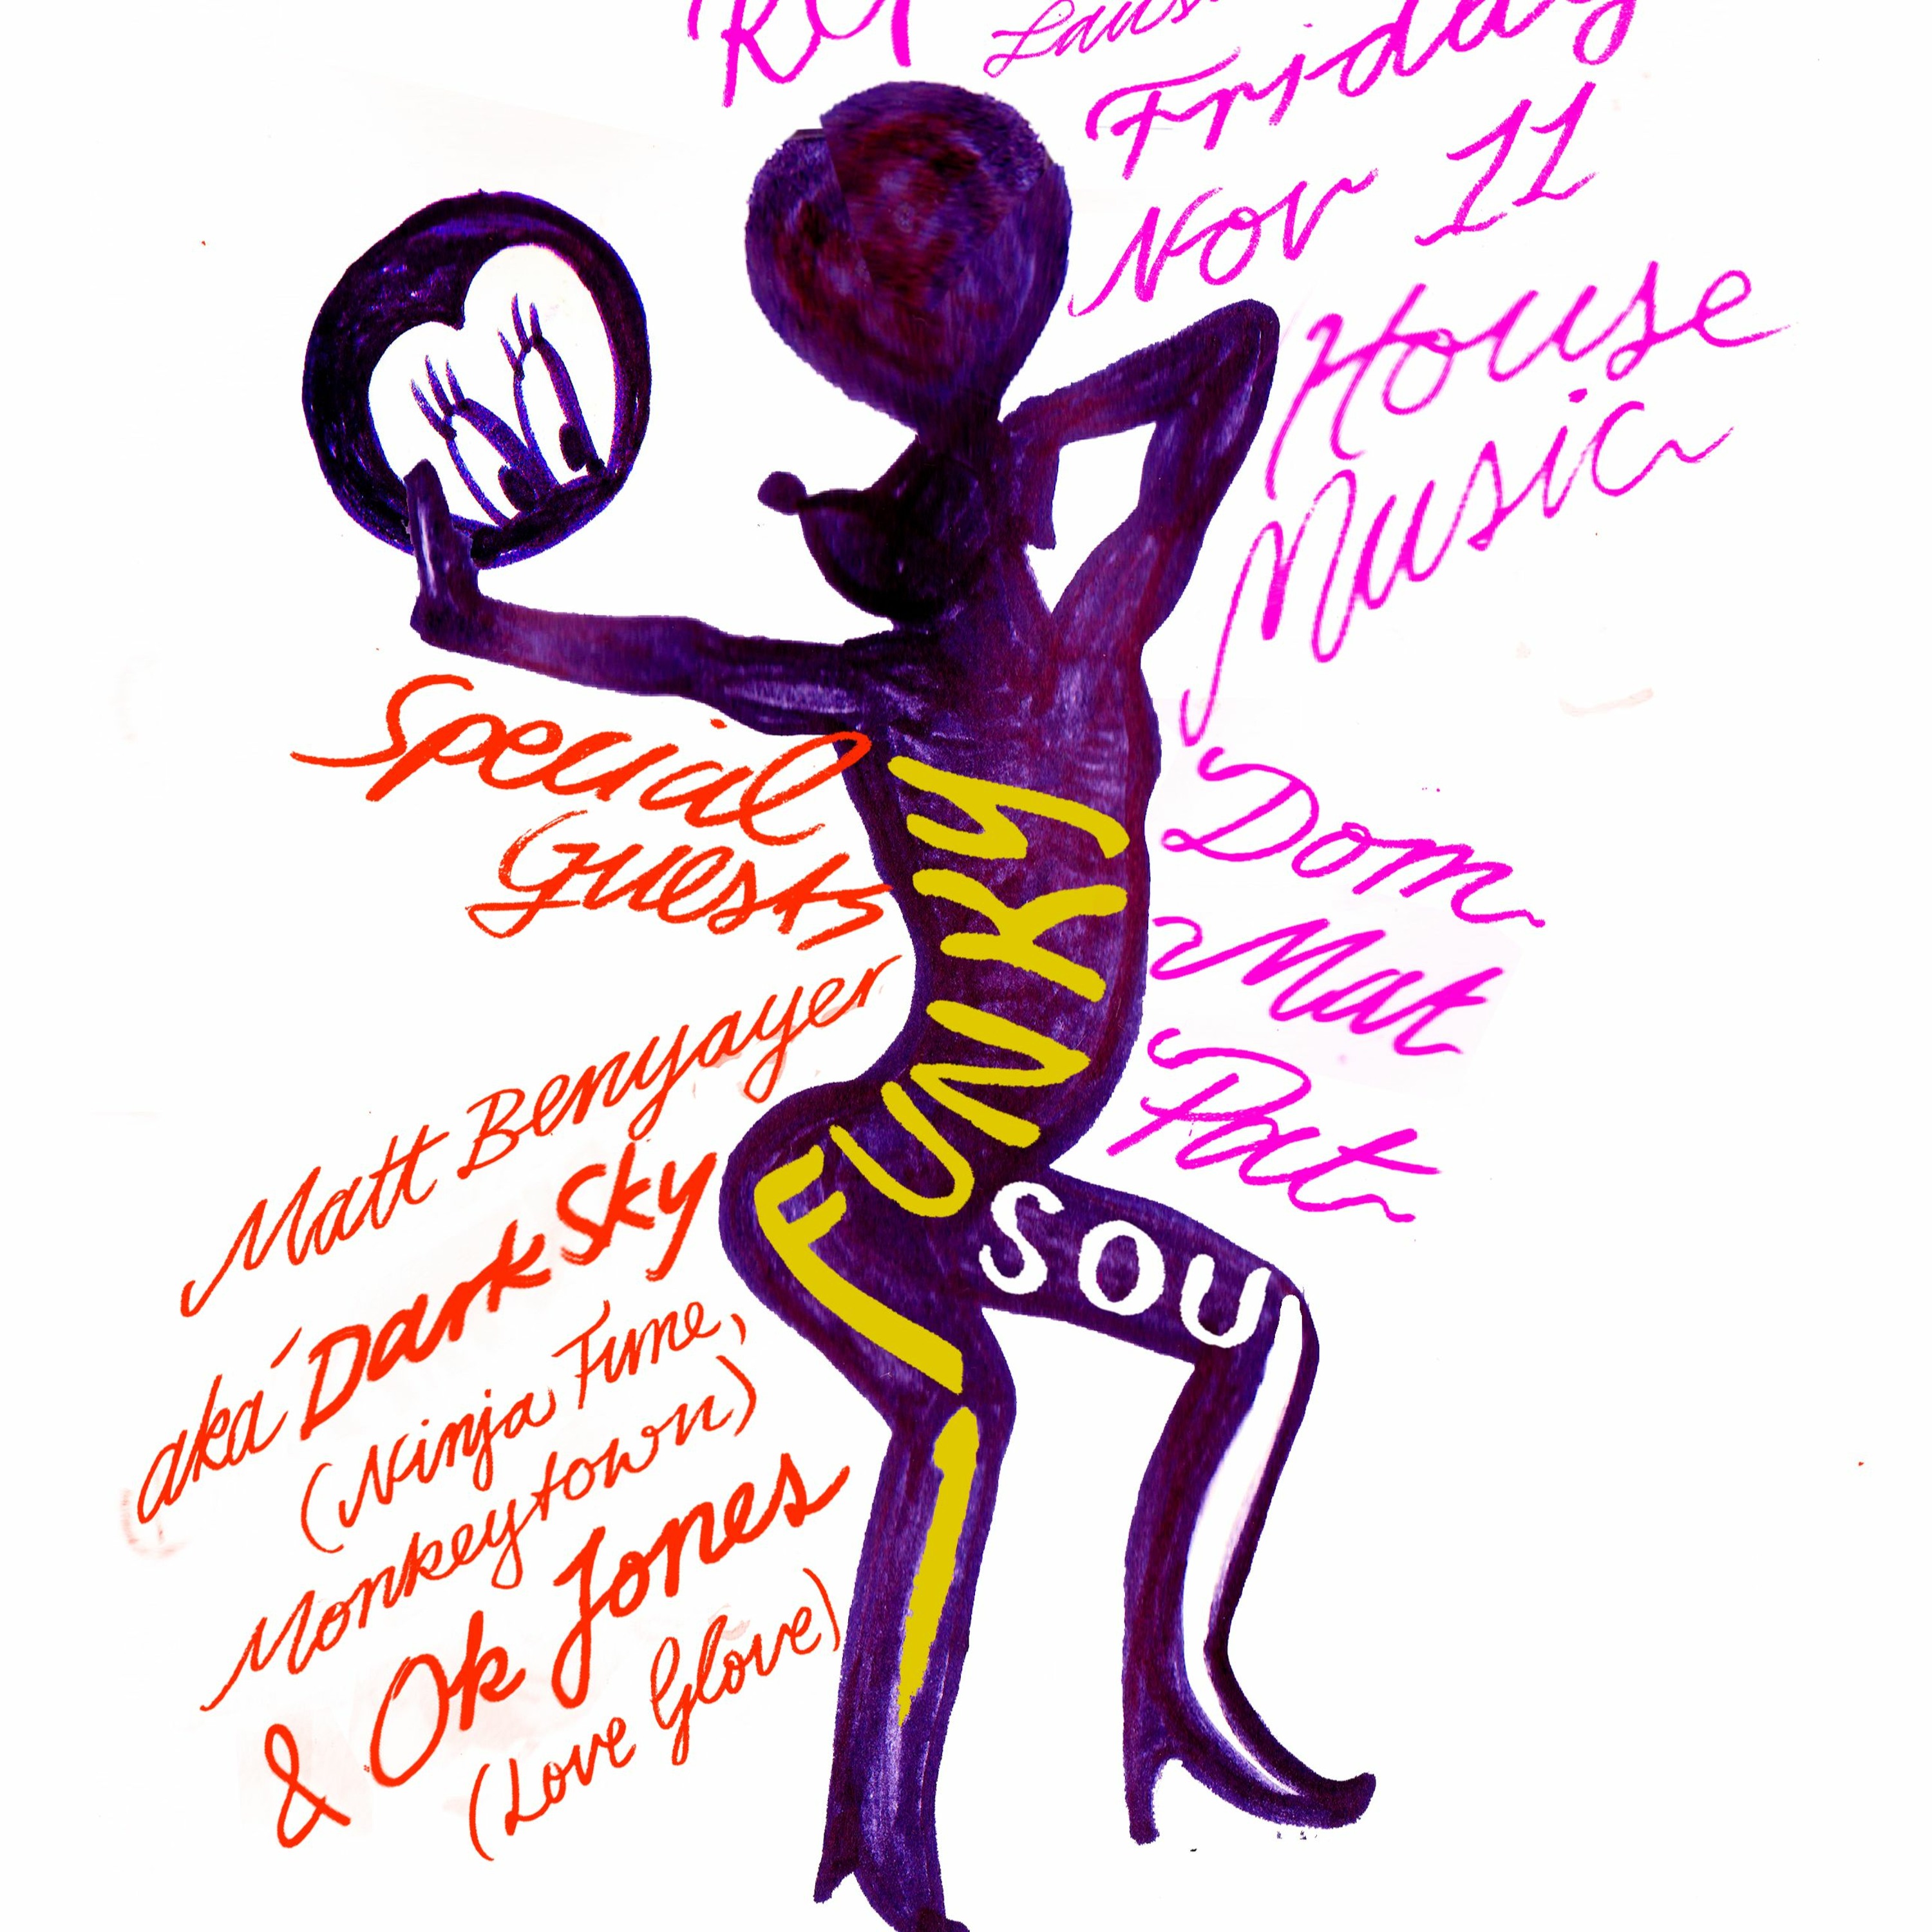 Friday
Nov 11
House
Music
Dom
Mat
Pat
Special
Guests
Matt Benyayer
aka 'Dark Sky
(Ninja Tune,
Monkeytown)
& Ok Jones
(Love Glove)
FUNKY
SOUL